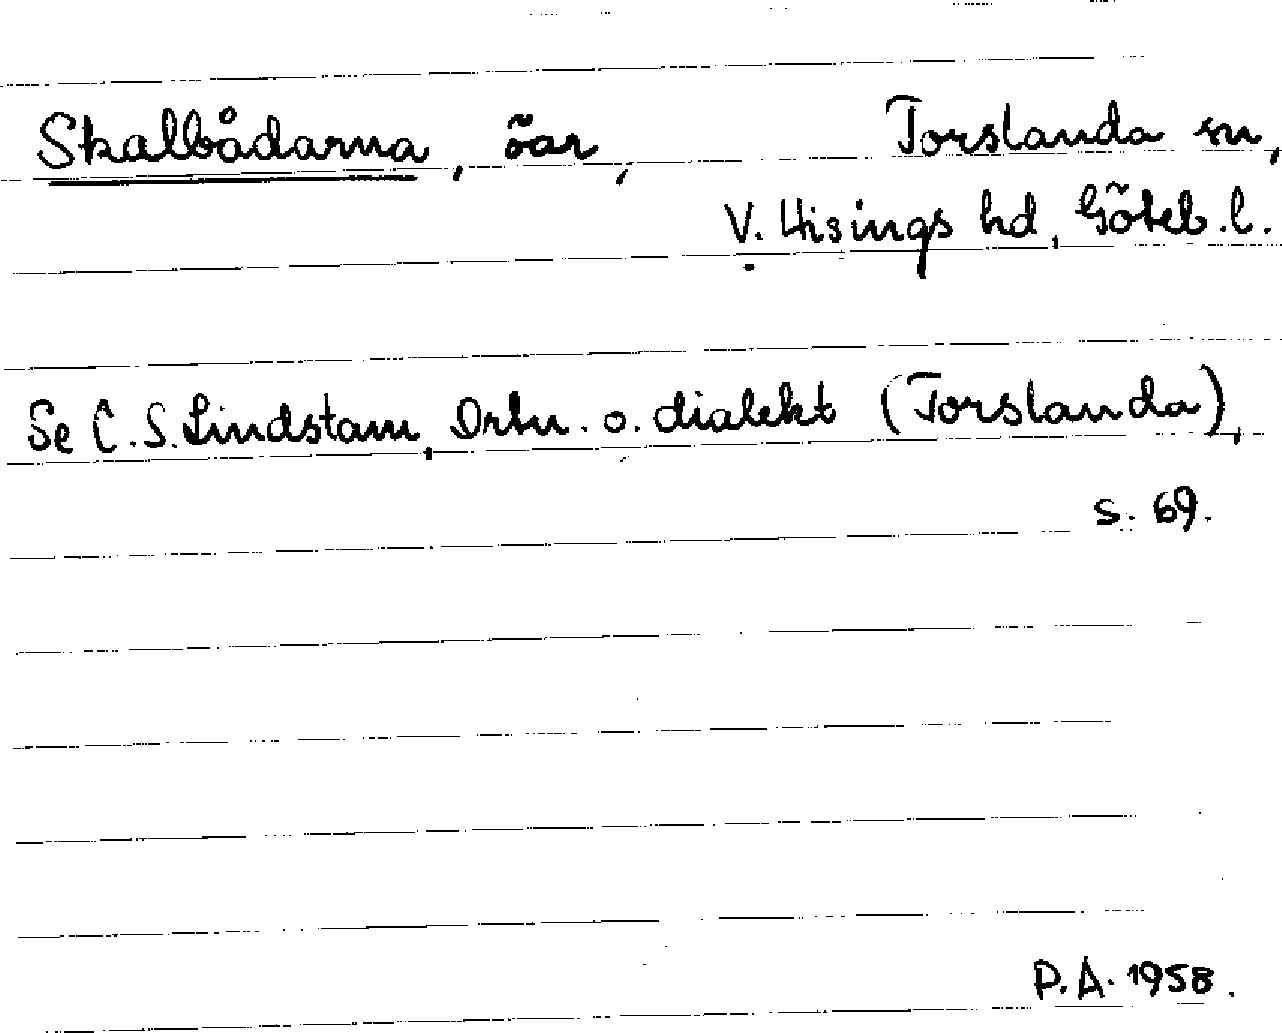 Skalbådarna, öar, Torslanda sn,
V. Hisings hd, Göteb. l.
Se C. S. Lindstam, Ortn. o. dialekt (Torslanda),
s. 69.
P. A. 1958.